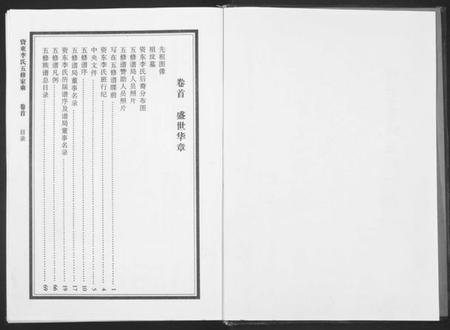 资东李氏五修家乘 卷首 目录
卷首 盛世华章
先祖图像
祖坟墓
资东李氏后裔分布图
五修谱局人员照片
五修谱赞助人员照片
写在五修谱牒前 1
资东李氏班行纪 4
中央文件 5
五修谱序 10
五修谱局董事名录 17
资东李氏历届谱序及谱局董事名录 19
五修谱凡例 66
五修族谱总目录 69